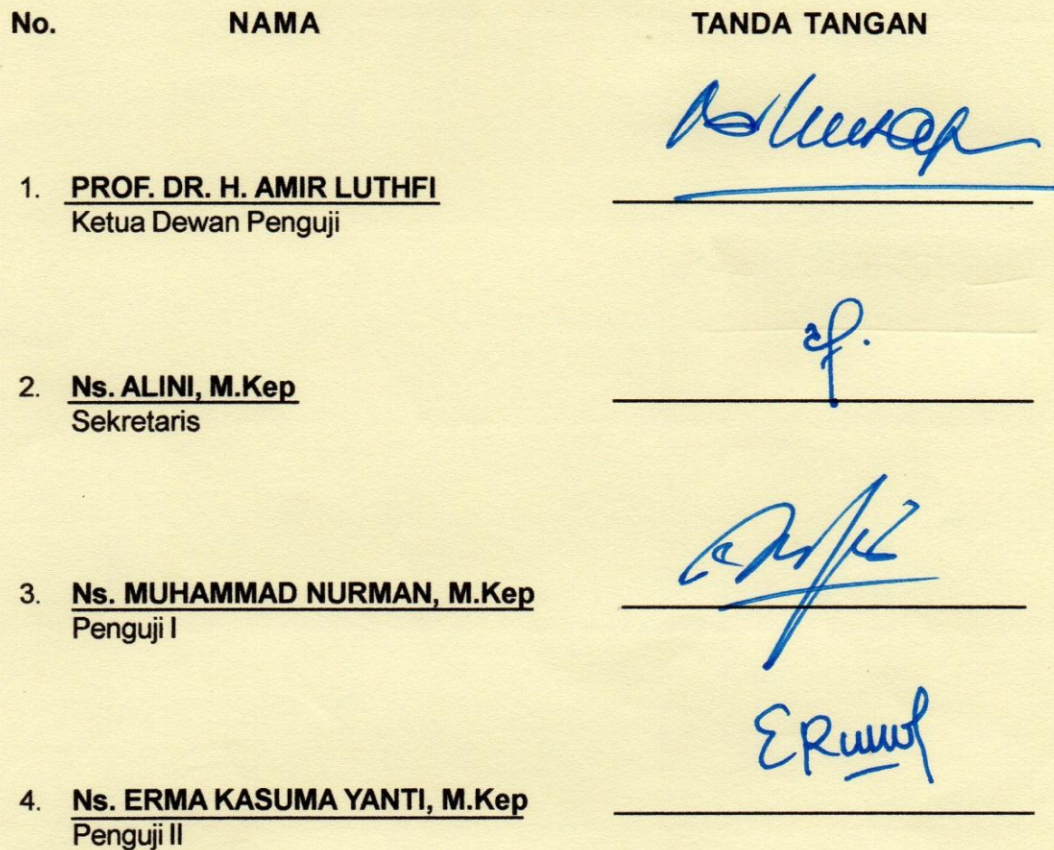 No. NAMA TANDA TANGAN
1. PROF. DR. H. AMIR LUTHFI
Ketua Dewan Penguji
2. Ns. ALINI, M.Kep
Sekretaris
3. Ns. MUHAMMAD NURMAN, M.Kep
Penguji I
4. Ns. ERMA KASUMA YANTI, M.Kep
Penguji II